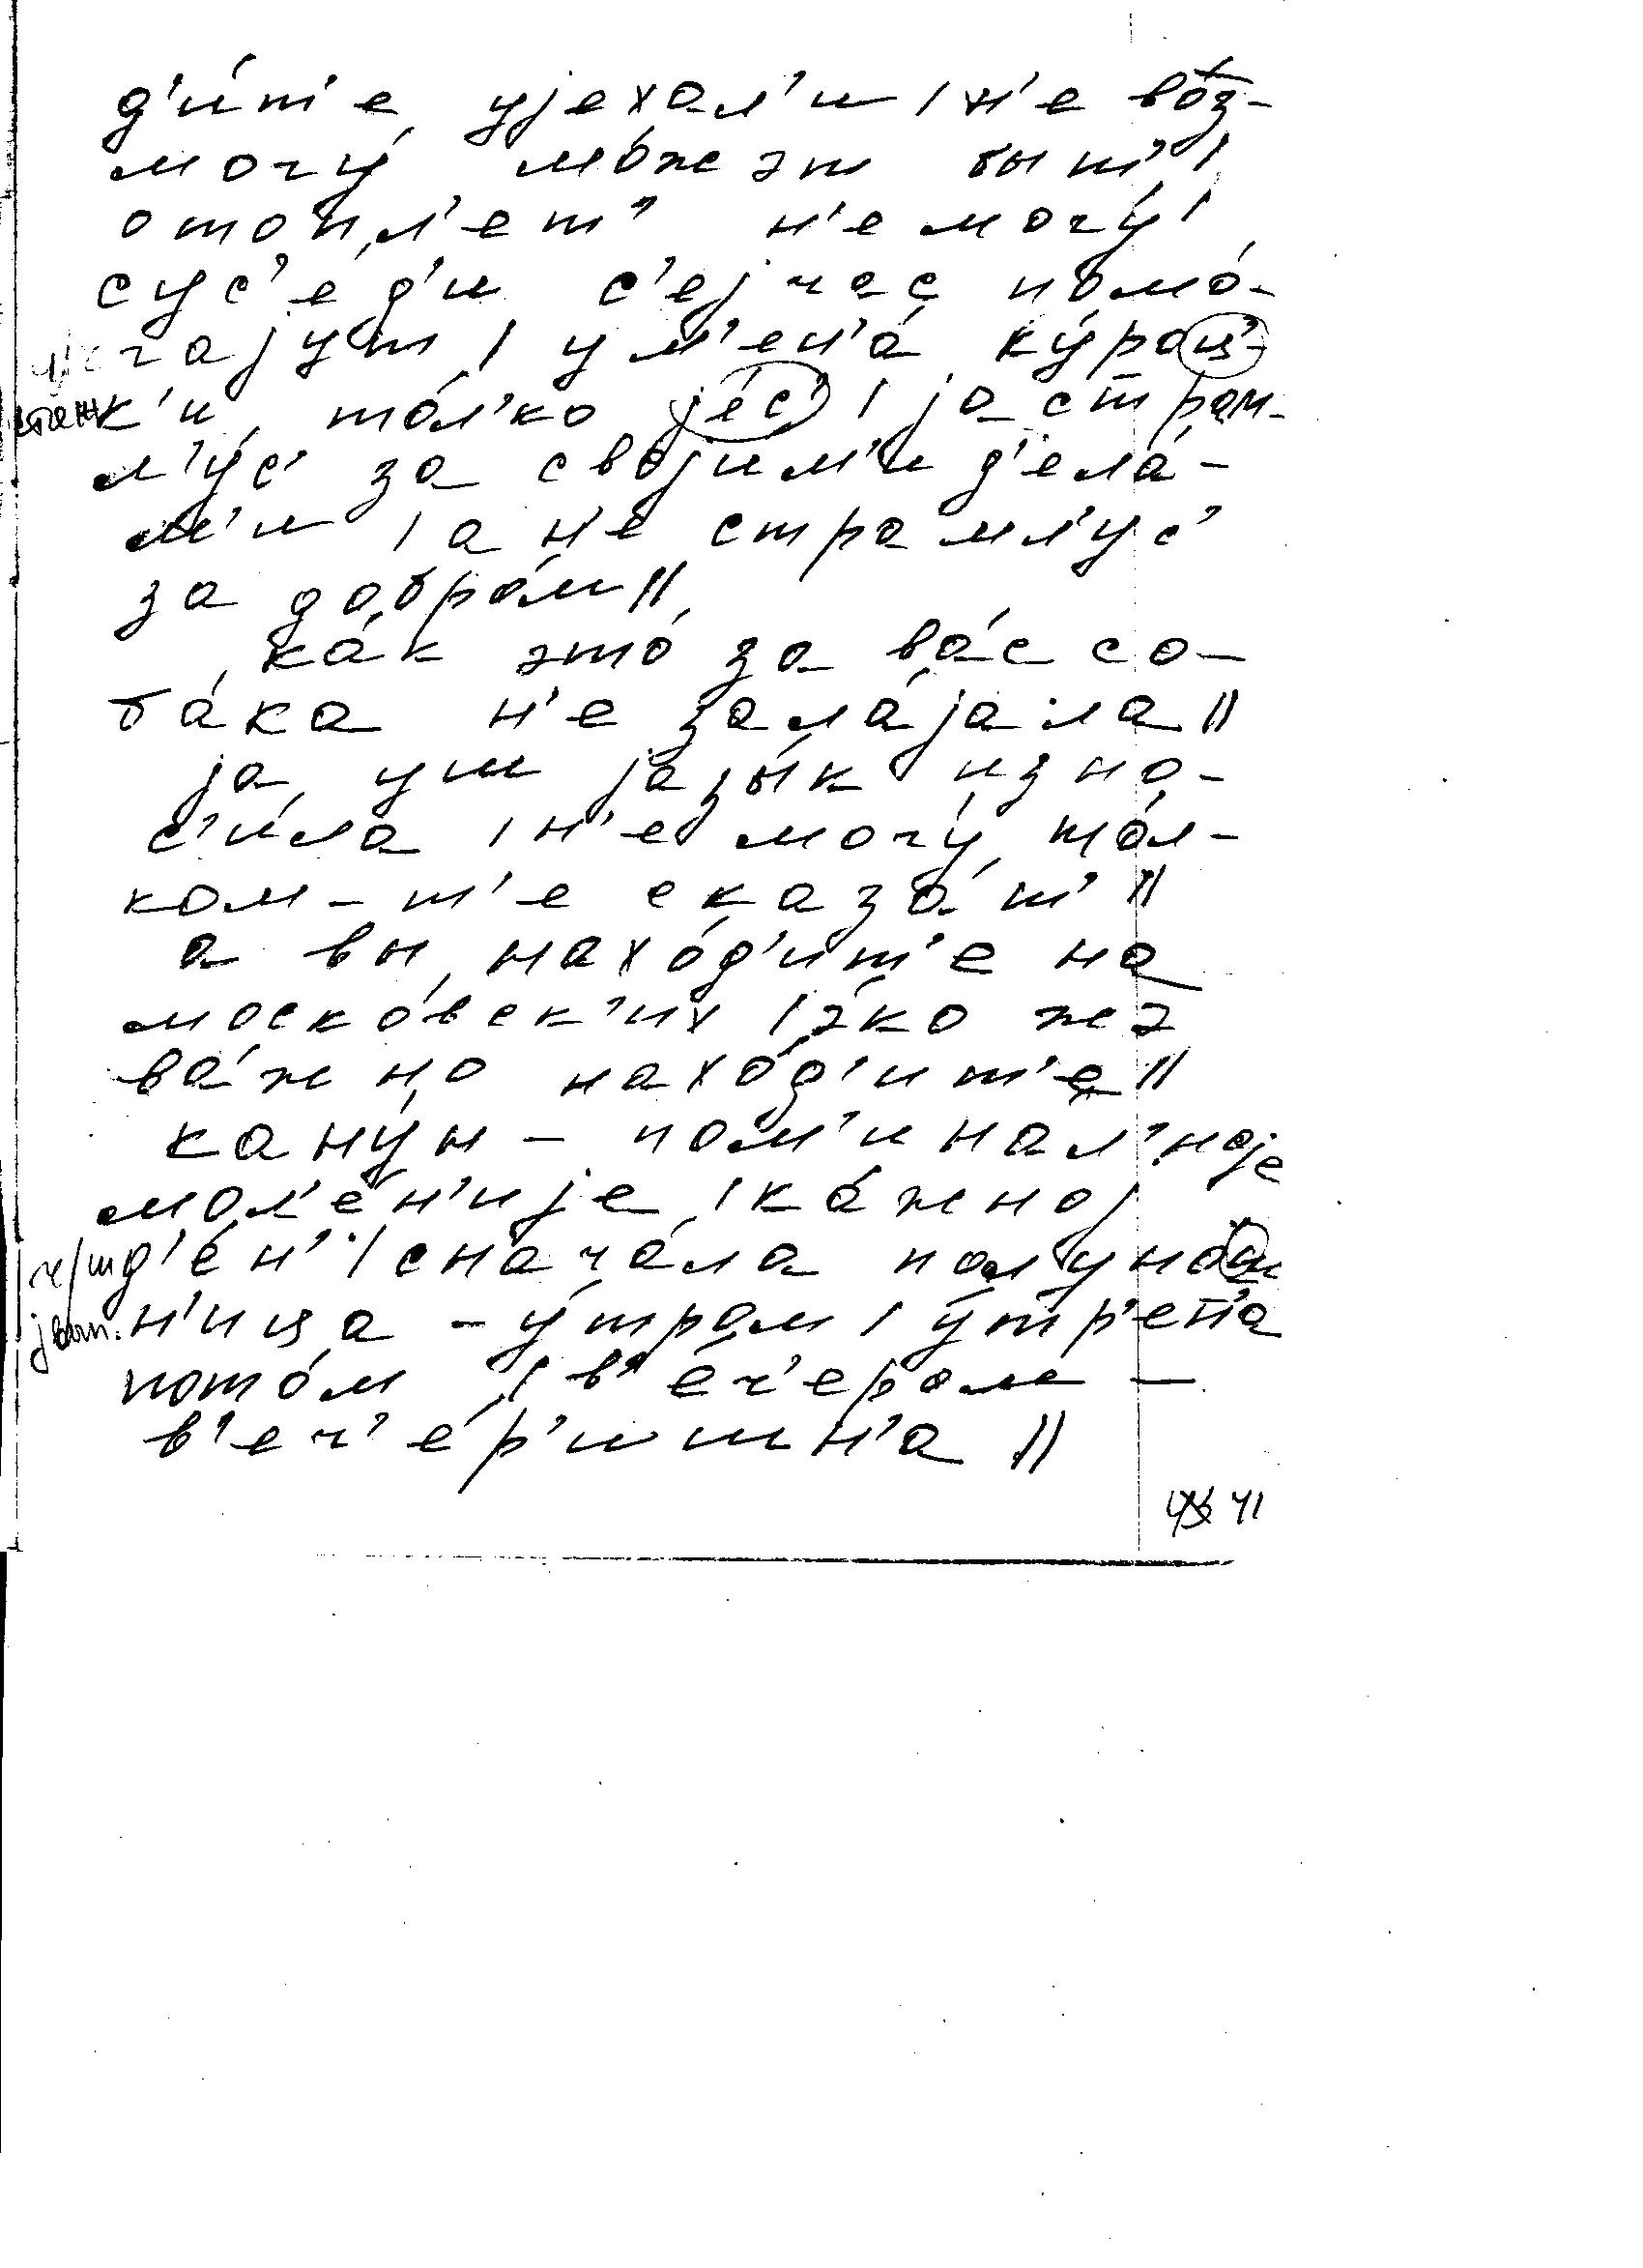 д'и́т'е ујехал'и | н'е воз-
могу́ мо́жэт быт' |
отопл'ет' н'е могу́ |
сус'е́д'и с'ејчас помо-
гају́т | у м'ен'а́ ку́рац'-
к'и то́л'ко је́с' | ја страм-
л'у́с' за својим'и д'ела́-
м'и | а н'е страмл'ус'
за добро́м ||
ка́к это́ за ва́с со-
ба́ка н'е зала́јала ||
ја уш јазы́к изно-
с'и́ла | н'е могу́ то́л-
ком-т'е сказа́т' ||
а вы нахо́д'ит'е на
моско́вск'их | э́ко жэ
ва́жно нахо́д'ит'е ||
кану́н – пом'инал'ноје
мол'е́н'ије | ка́жној
д'е́н' | снача́ла полуно́ш
н'ица – у́тром | у́тр'ен'а
пото́м | в'е́ч'ером –
в'еч'е́р'ишн'а ||
41